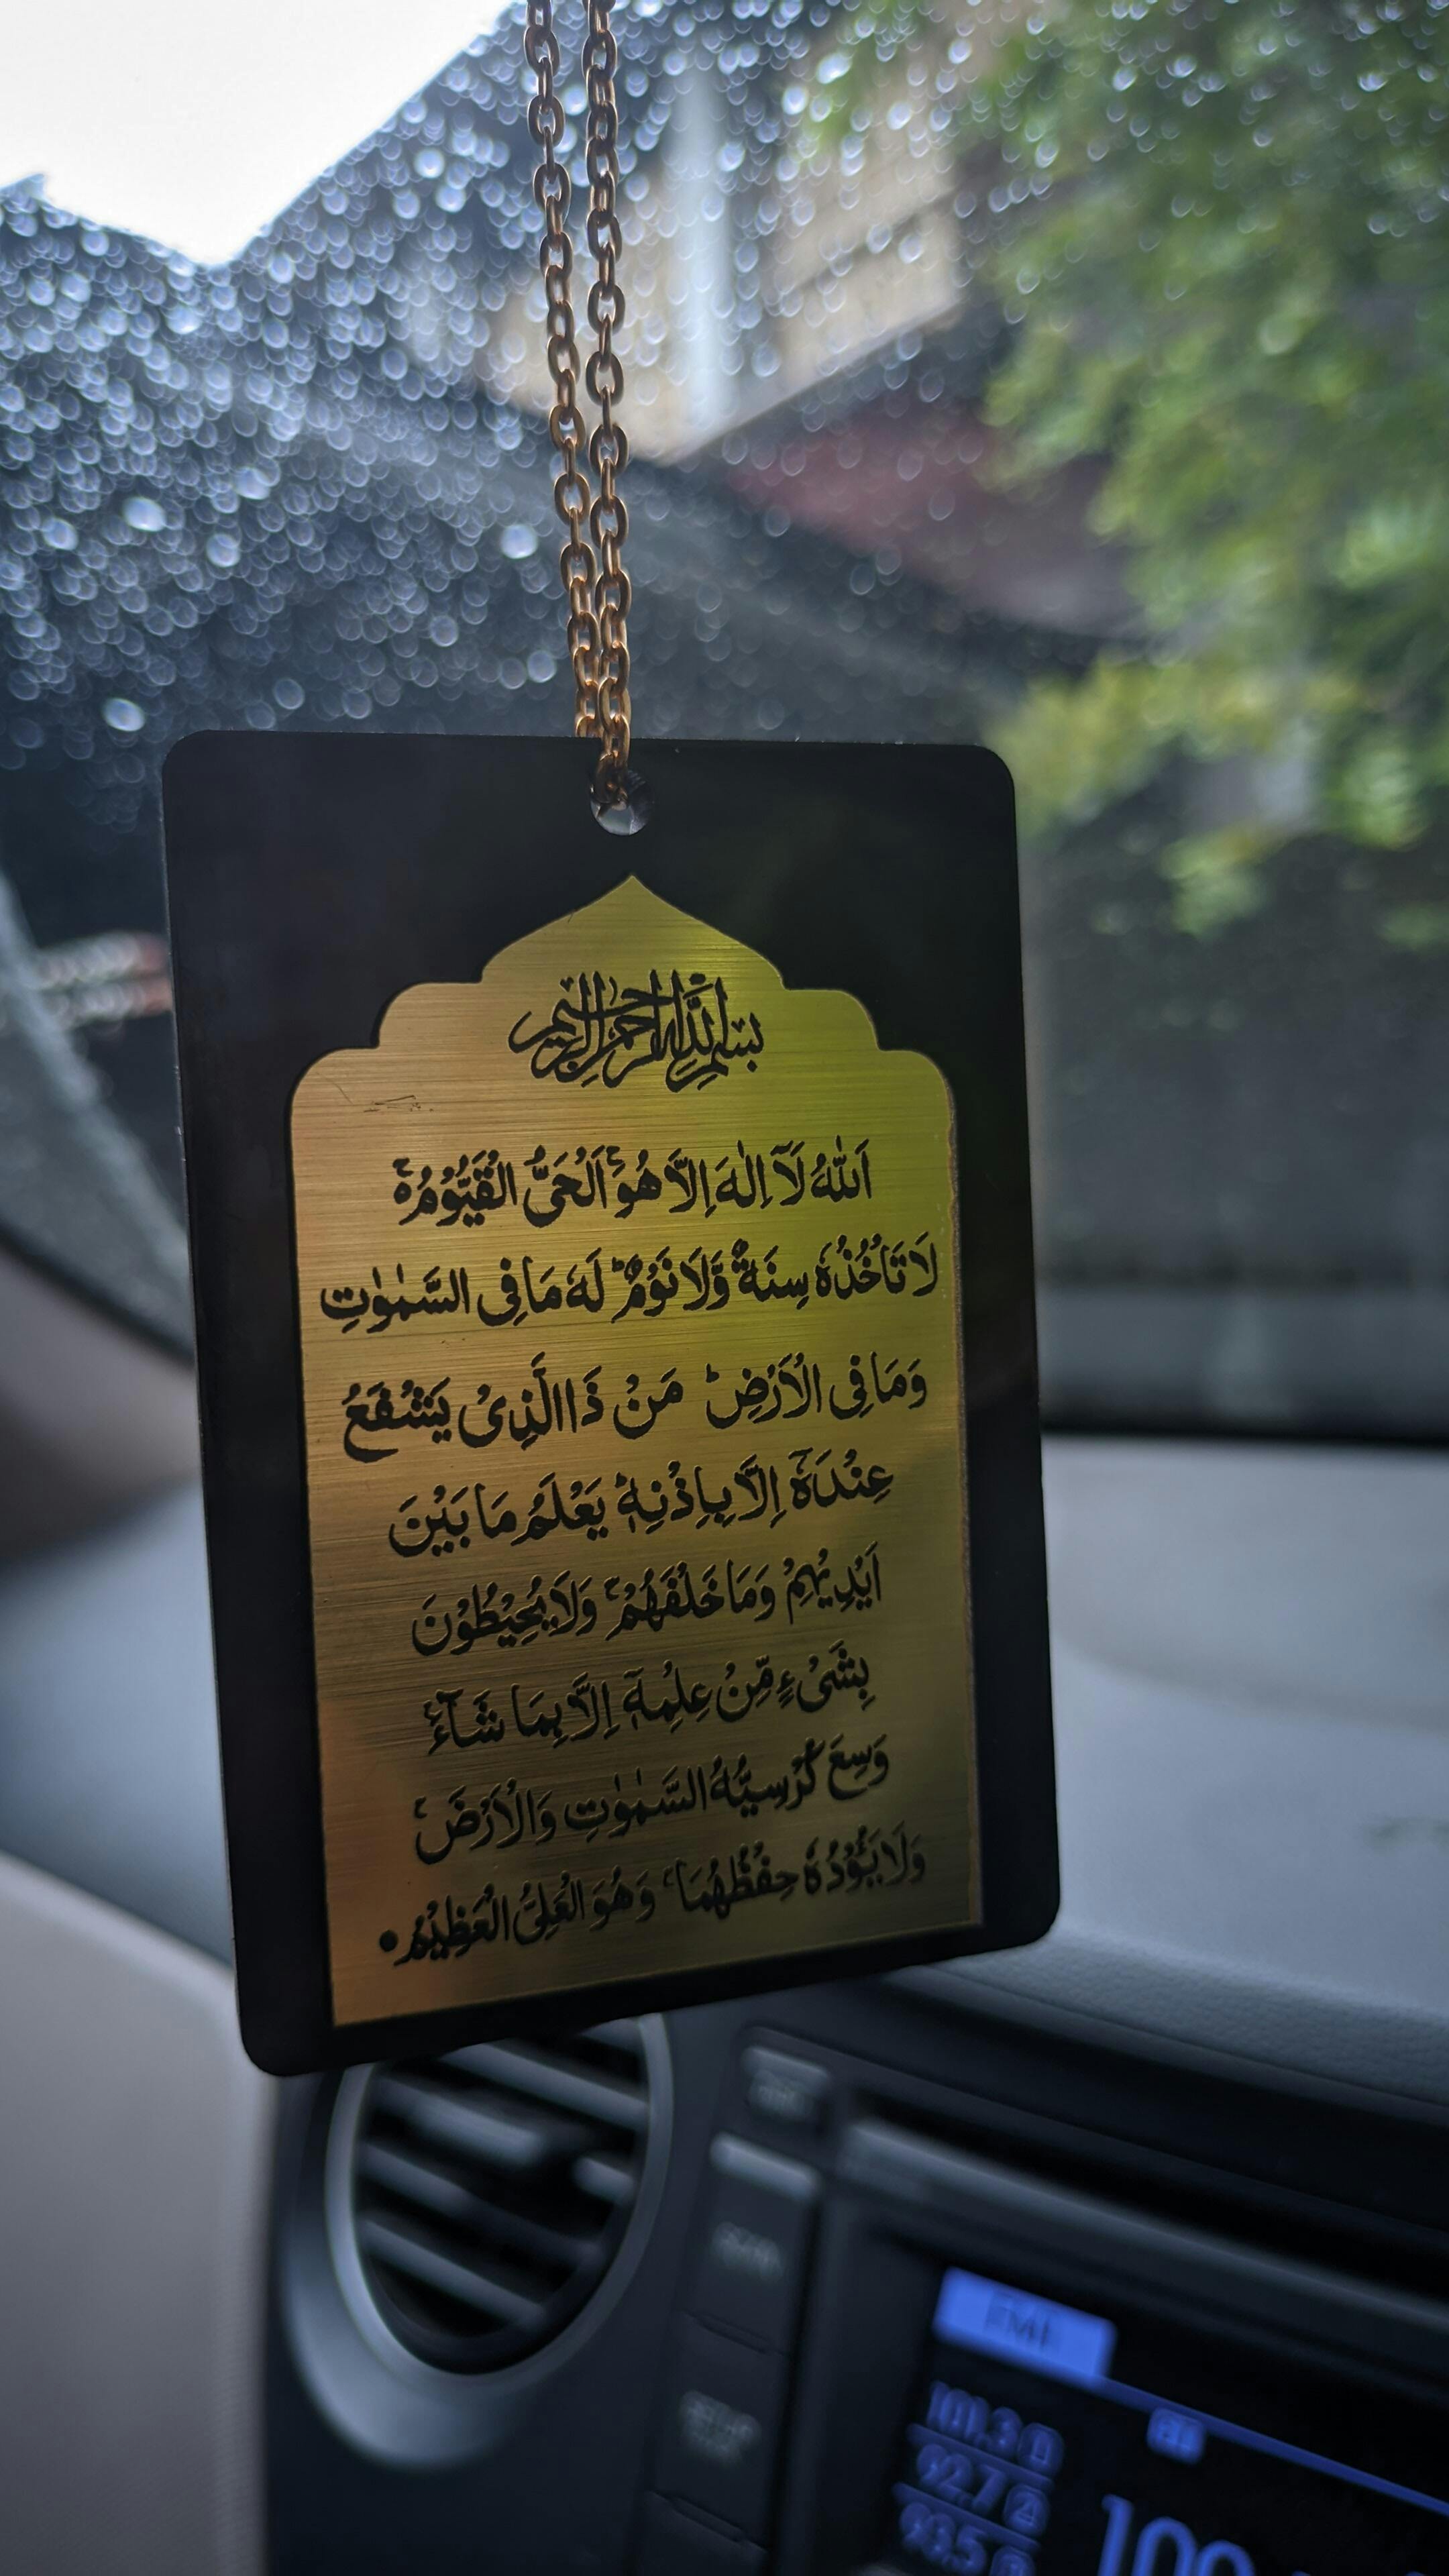 بسم الله الرحمن الرحيم
اَللّٰهُ لَآ اِلٰهَ اِلَّا هُوَۚ اَلْحَىُّ الْقَيُّوْمُ ەۚ
لَا تَاْخُذُهٗ سِنَةٌ وَّلَا نَوْمٌؕ لَهٗ مَا فِى السَّمٰوٰتِ
وَمَا فِى الْاَرْضِؕ مَنْ ذَا الَّذِىْ يَشْفَعُ
عِنْدَهٗٓ اِلَّا بِاِذْنِهٖؕ يَعْلَمُ مَا بَيْنَ
اَيْدِيْهِمْ وَمَا خَلْفَهُمْۚ وَلَا يُحِيْطُوْنَ
بِشَىْءٍ مِّنْ عِلْمِهٖٓ اِلَّا بِمَا شَآءَۚ
وَسِعَ كُرْسِيُّهُ السَّمٰوٰتِ وَالْاَرْضَۚ
وَلَا يَئُوْدُهٗ حِفْظُهُمَاۚ وَهُوَ الْعَلِىُّ الْعَظِيْمُ
FM1
101.3
92.7
93.5